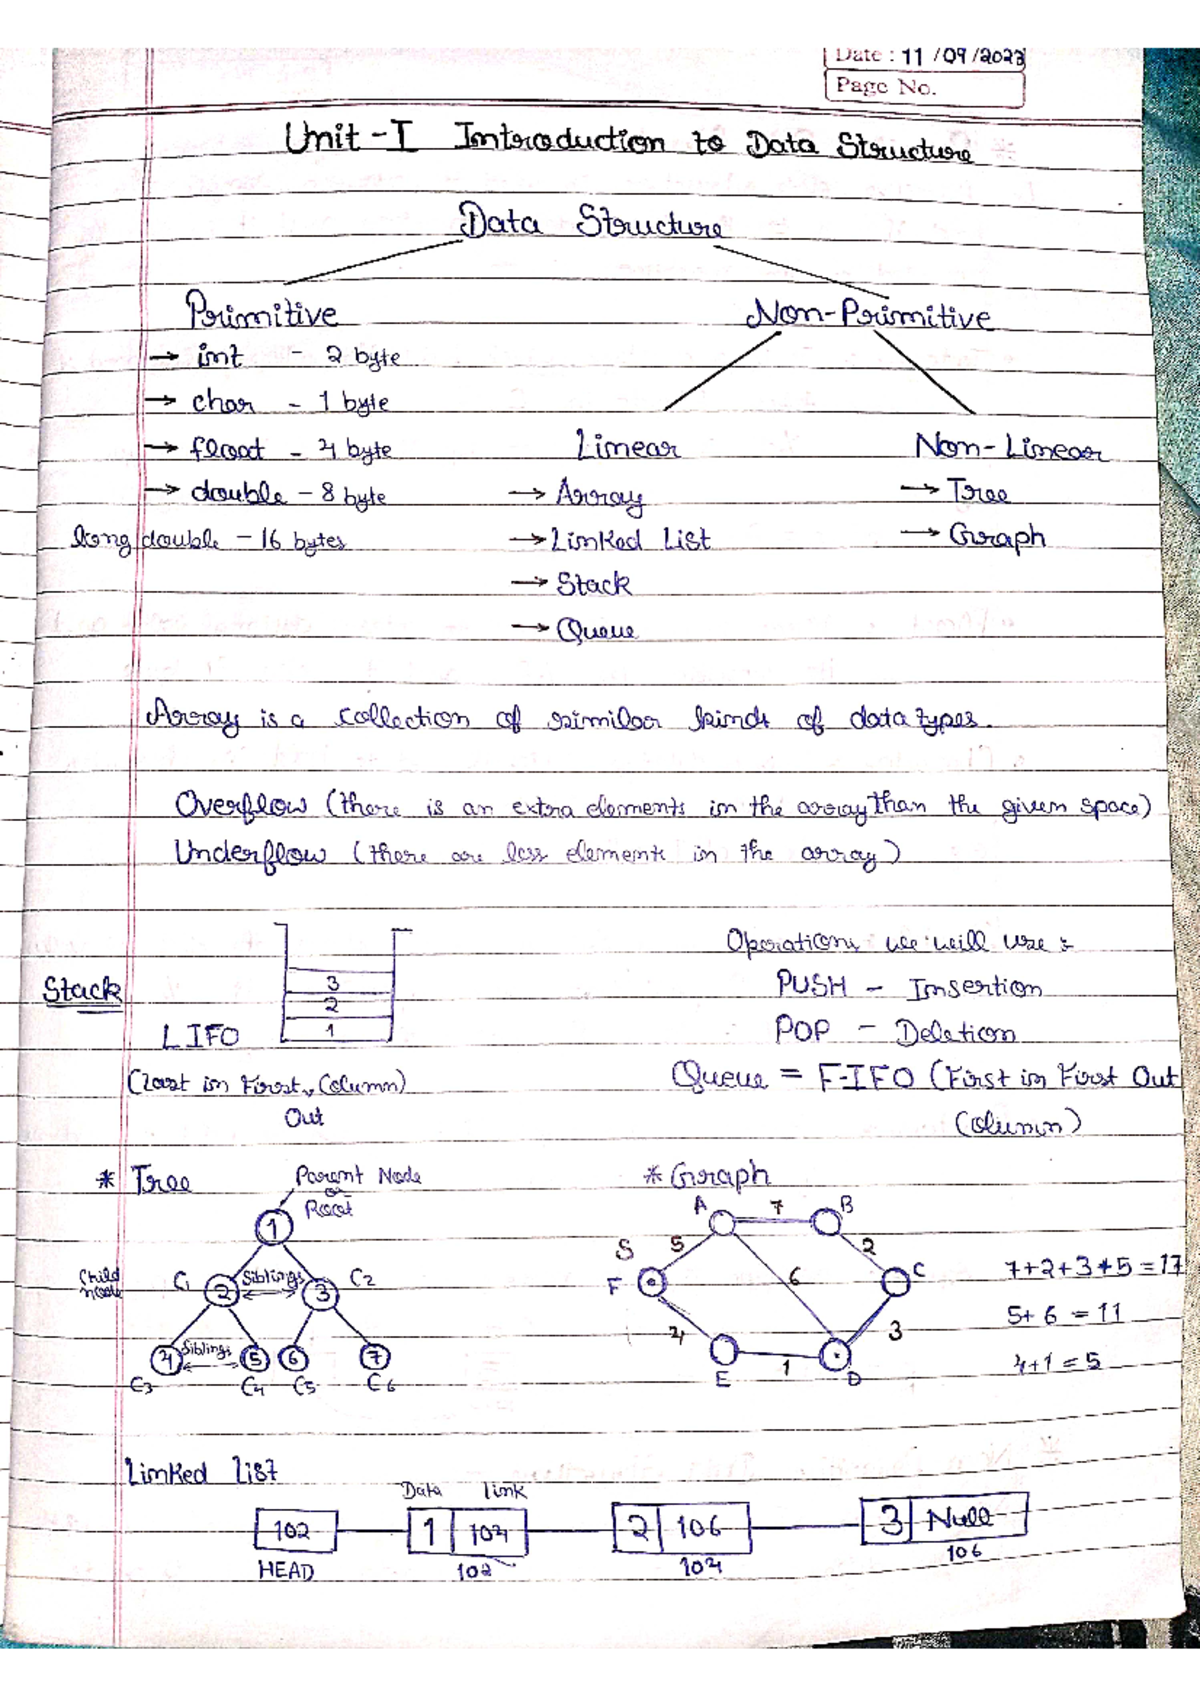 Date : 11/09/2023
Page No.
Unit - I Introduction to Data Structure
Data Structure
Primitive
Non-Primitive
→ int - 2 byte
→ char - 1 byte
→ float - 4 byte
Linear
Non-Linear
→ double - 8 byte
→ Array
→ Tree
long double - 16 bytes
→ Linked List
→ Graph
→ Stack
→ Queue
Array is a collection of similar kinds of data types.
Overflow (there is an extra elements in the array than the given space)
Underflow (there are less elements in the array)
Operations we will use :
Stack
3
2
1
PUSH - Insertion
LIFO
POP - Deletion
(Last in First, Column)
Out
Queue = F-IFO (First in First Out
Column)
* Tree
Parent Node
or
Root
1
Child node
C1
2
Siblings
3
C2
4
Siblings
5
6
7
C3
C4
C5
C6
* Graph
A
7
B
S
5
2
F
6
C
4
3
E
1
D
7+2+3+5=17
5+6 = 11
4+1 = 5
Linked List
Data
link
102
1
104
2
106
3
Null
HEAD
102
104
106